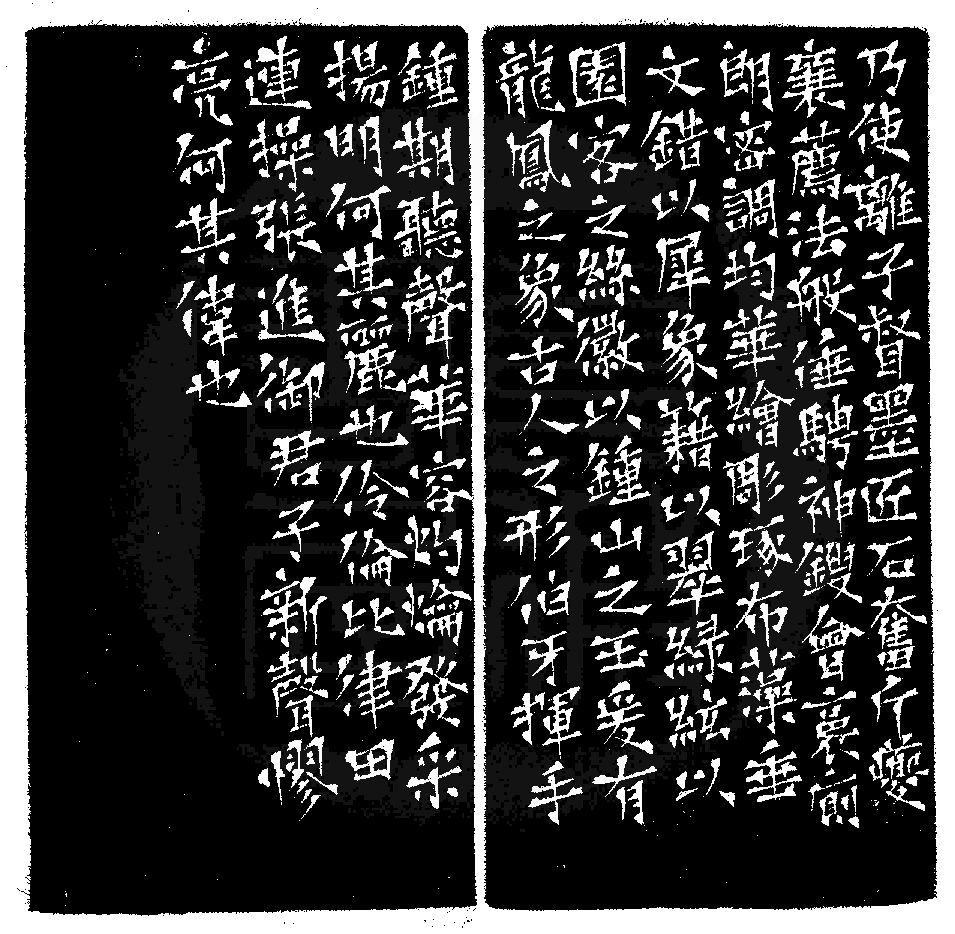 乃使離子督墨匠石奮斤夔
襄薦法般倕騁神鎪會裛廁
朗密調均華繪彫琢布藻垂
文錯以犀象籍以翠綠絃以
園客之絲徽以鍾山之玉爰有
龍鳳之象古人之形伯牙揮手
鍾期聽聲華容灼爚發采
揚明何其麗也伶倫比律田
連操張進御君子新聲憀
亮何其偉也